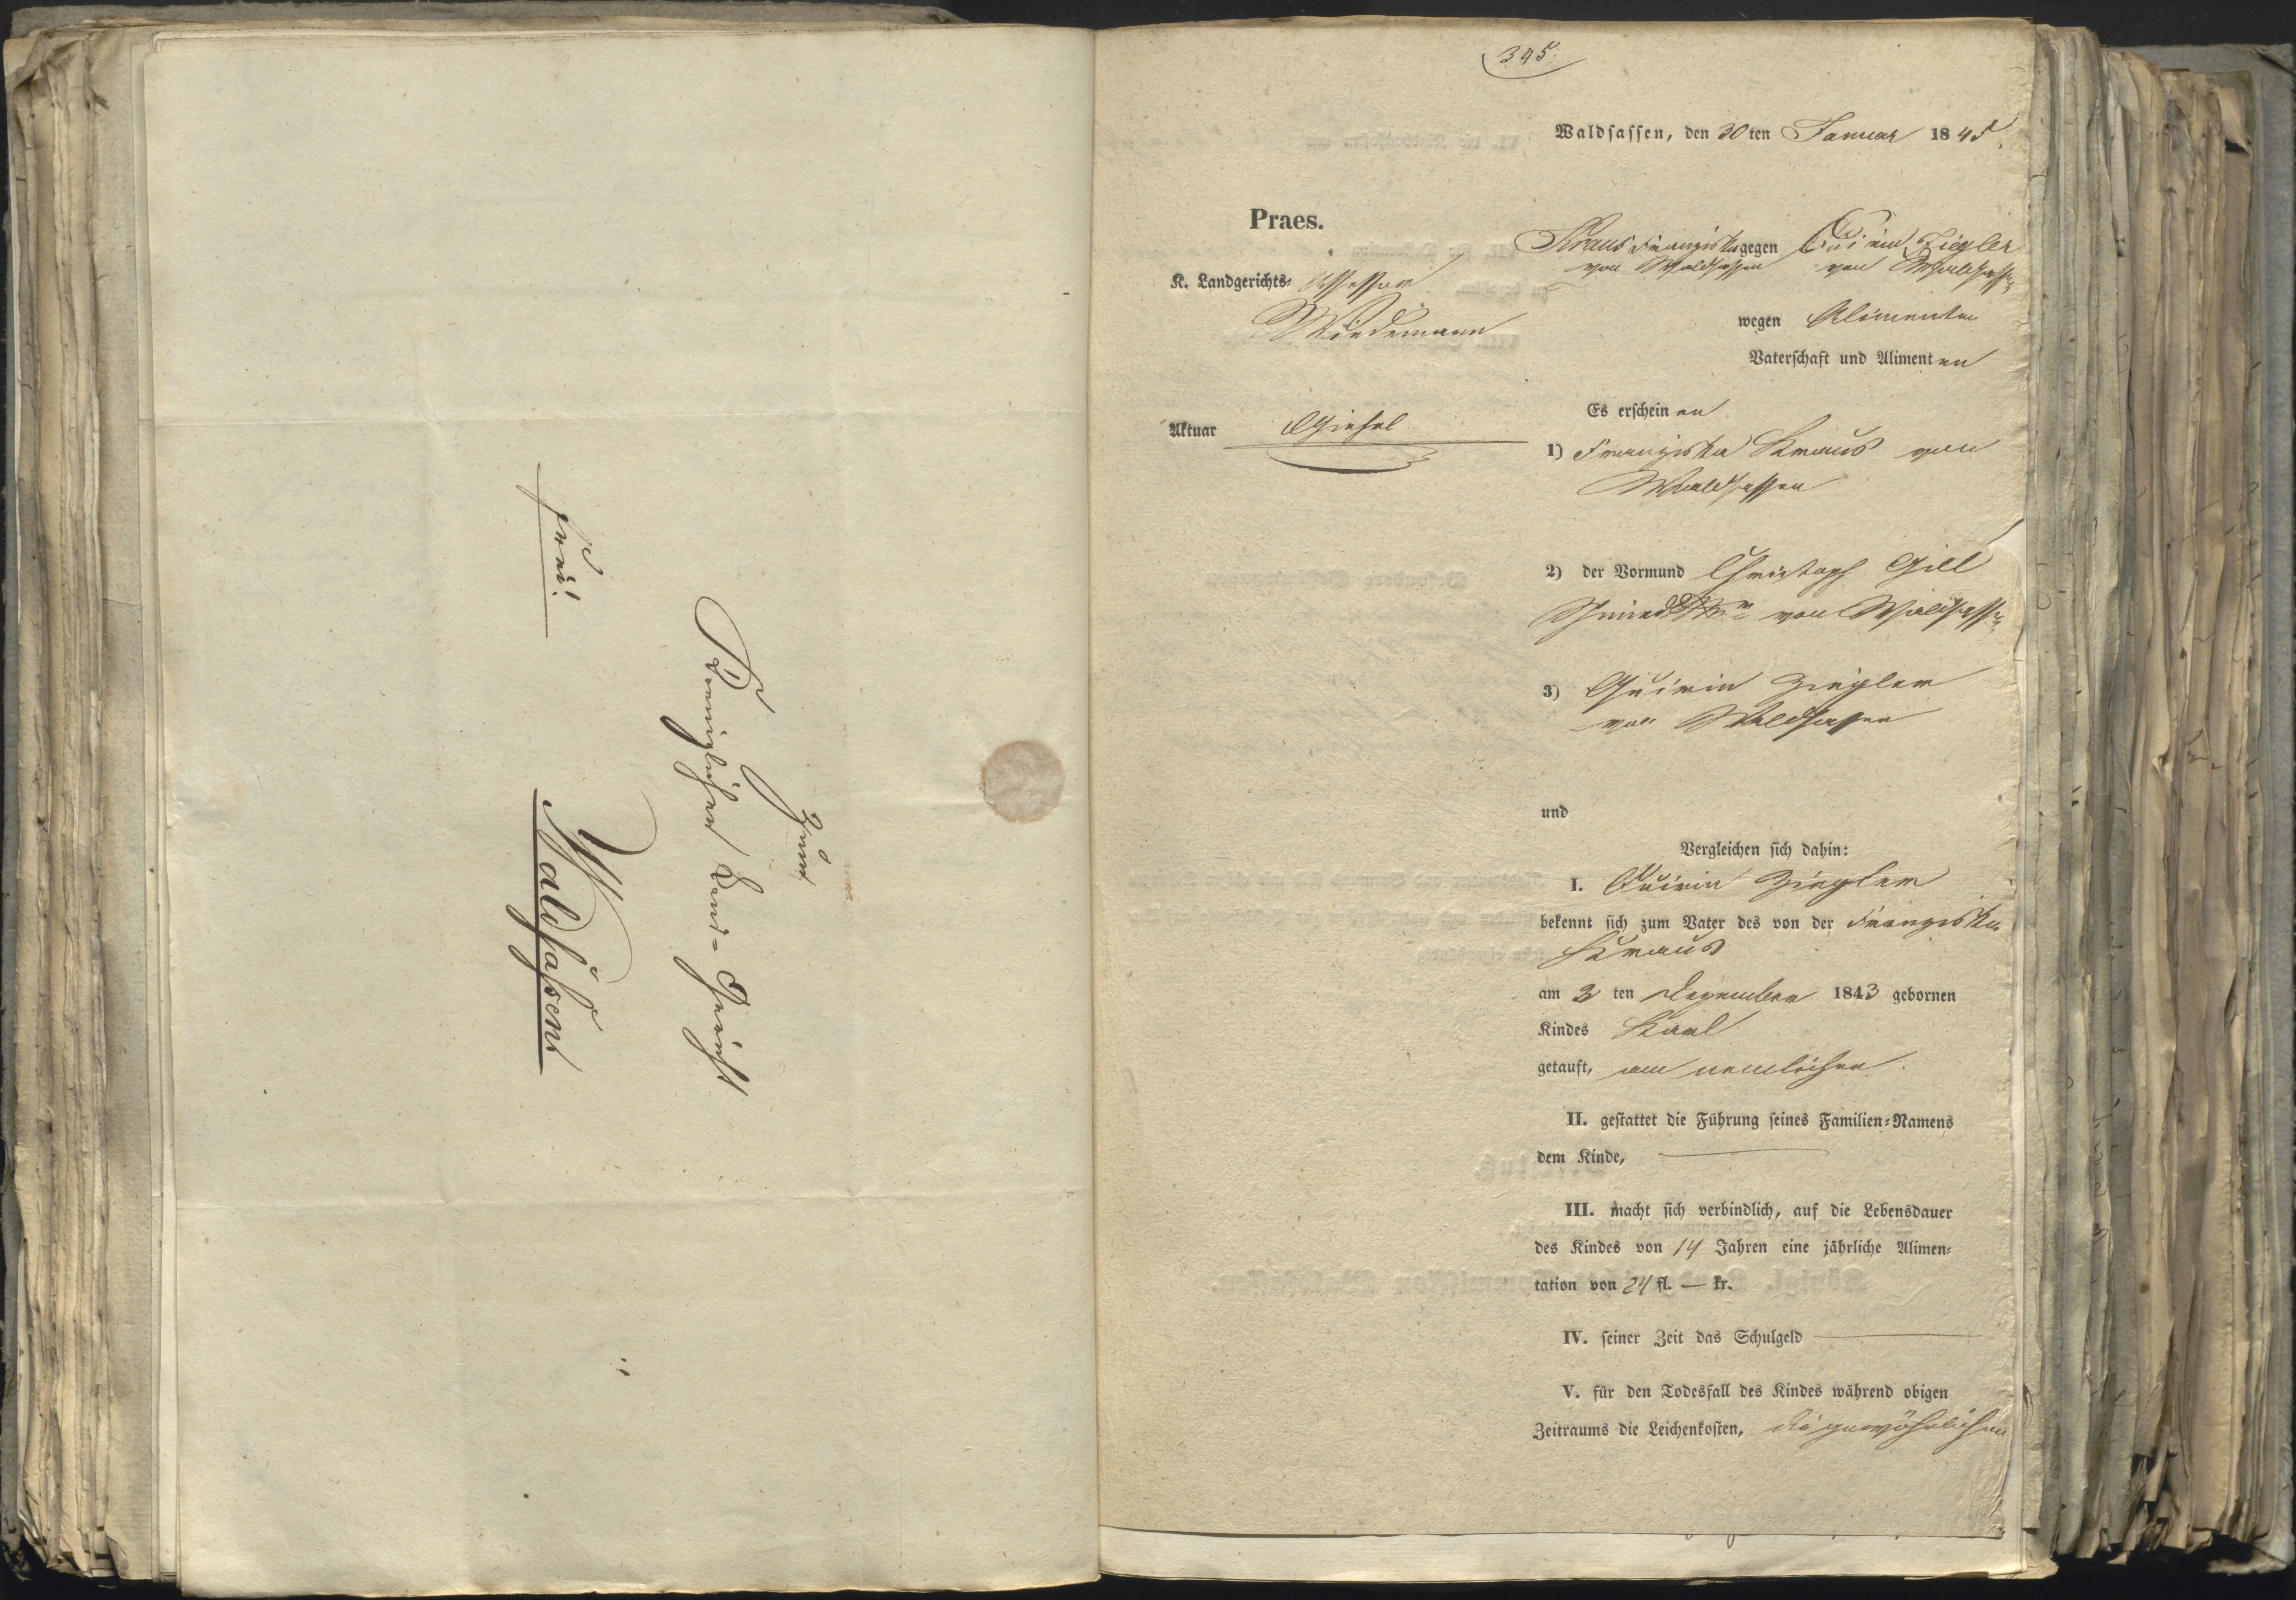 Zum
Koeniglichen Land-Gericht
frei!
Waldsaßen
345.
Waldsassen, den 30ten Januar 1845.
Praes.
Kraus Franziska gegen Quirin Ziegler
von Waldsassen von Waldsassen
K. Landgerichts- Assessor
Wiedemann
wegen Alimenten
Vaterschaft und Alimenten
Aktuar
Es erscheinen
1) Franziska Kraus von
Waldsassen
2) der Vormund Christoph Gill
von Waldsassen
3) Quirin Ziegler
von Waldsassen
und
Vergleichen sich dahin:
I. Quirin Ziegler
bekennt sich zum Vater des von der Franziska
Kraus
am 3 ten Dezember 1843 gebornen
Kindes Karl
getauft, am nemlichen.
II. gestattet die Führung seines Familien-Namens
dem Kinde,
III. macht sich verbindlich, auf die Lebensdauer
des Kindes von 14 Jahren eine jährliche Alimen-
tation von 24 fl. — kr.
IV. seiner Zeit das Schulgeld
V. für den Todesfall des Kindes während obigen
Zeitraums die Leichenkosten, die gewöhnlichen